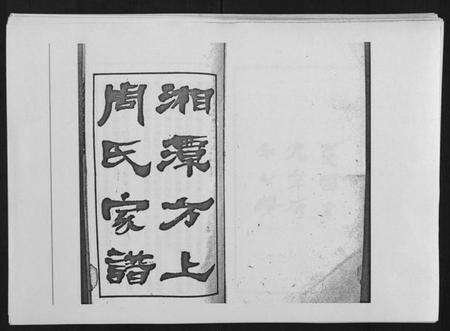 湘潭方上
周氏家譜